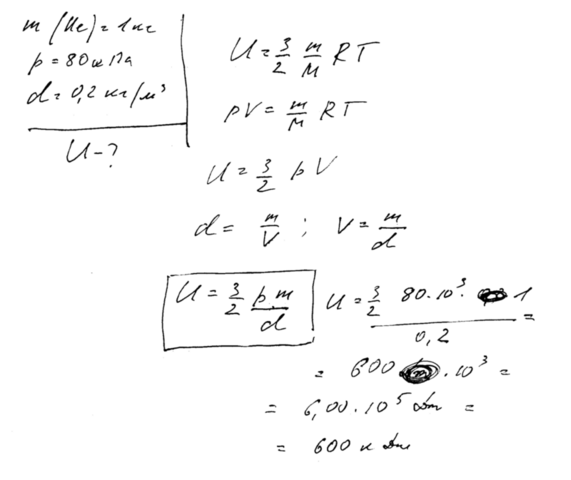 m (He) = 1 кг
p = 80 кПа
d = 0,2 кг/м³
U - ?
U = 3/2 m/M RT
pV = m/M RT
U = 3/2 pV
d = m/V ; V = m/d
U = 3/2 p·m/d
U = 3/2 80·10³· 1/0,2 =
= 600 ·10³ =
= 6,00·10⁵ Дж =
= 600 кДж